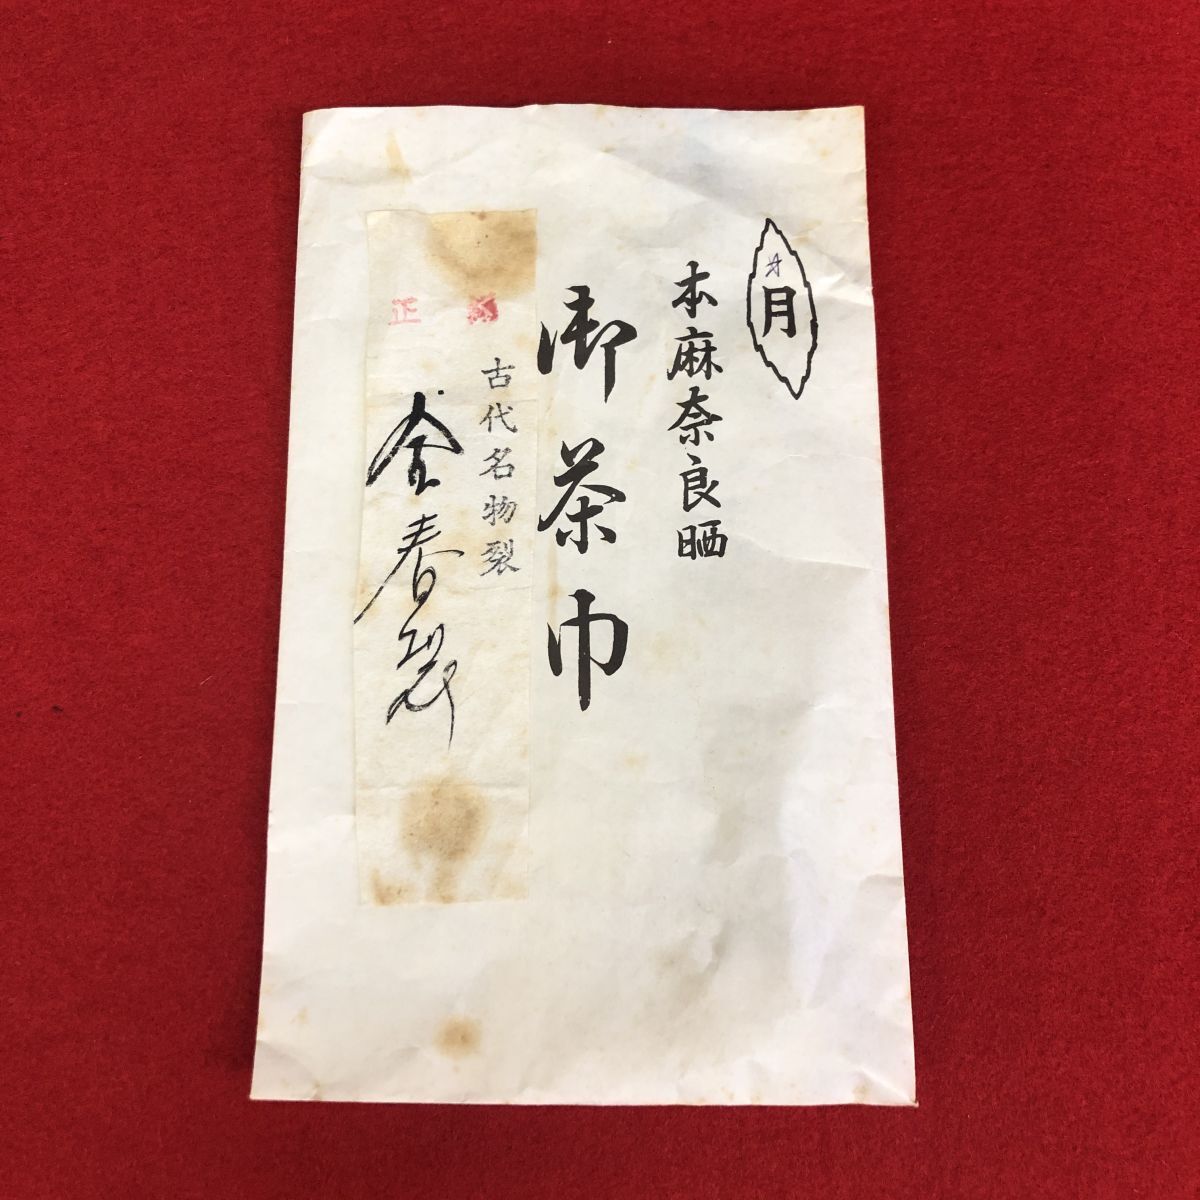 月
本麻奈良晒
御茶巾
古代名物裂
正
金春裂